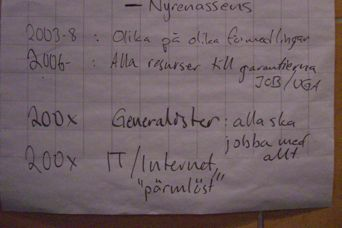 — Nyrenässens
2003-8 : Olika på olika förmedlingar
2006- : Alla resurser till garantierna
JOB/UGA
200x Generalister: alla ska
jobba med
allt
200x IT/Internet,
"pärmlöst"